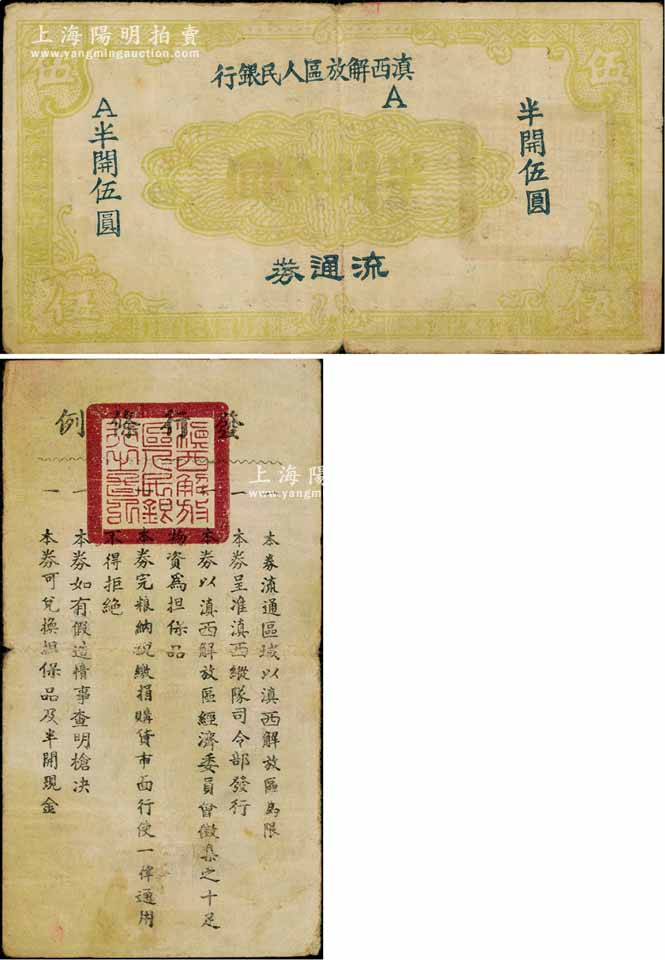 上海陽明拍賣
www.yangmingauction.com
伍
伍
滇西解放區人民銀行
A
半開伍圓
A半開伍圓
流通券
伍
伍
發行條例
滇西解放
區人民銀
上海陽
www.yangm
一
本券流通區域以滇西解放區為限
一
本券呈准滇西縱隊司令部發行
本券以滇西解放區經濟委員會徵集之十足
物資爲担保品
本券完粮納税繳捐購貨市面行使一律通用
不得拒絕
一
本券如有假造情事查明槍决
一
本券可兌換担保品及半開現金